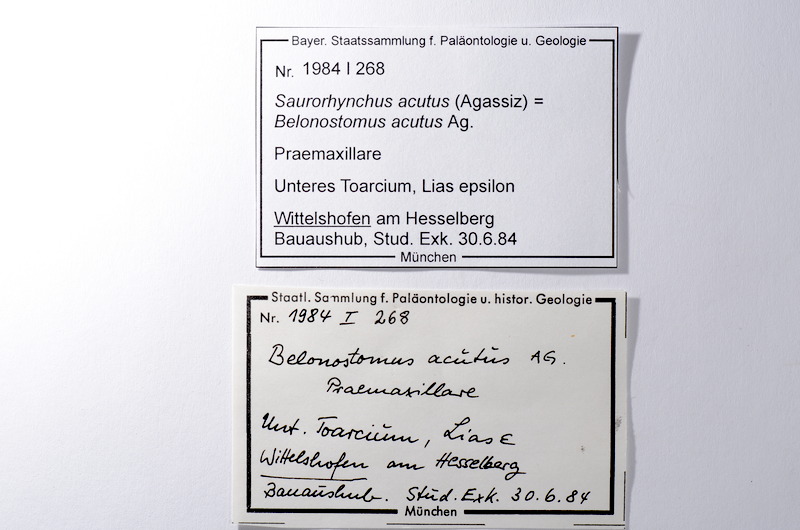 Bayer. Staatssammlung f. Paläontologie u. Geologie
Nr. 1984 I 268
Saurorhynchus acutus (Agassiz) =
Belonostomus acutus Ag.
Praemaxillare
Unteres Toarcium, Lias epsilon
Wittelshofen am Hesselberg
Bauaushub, Stud. Exk. 30.6.84
München
Staatl. Sammlung f. Paläontologie u. histor. Geologie
Nr. 1984 I 268
Belonostomus acutus AG.
Praemaxillare
Unt. Toarcium, Lias ε
Wittelshofen am Hesselberg
Bauaushub. Stud. Exk. 30.6.84
München